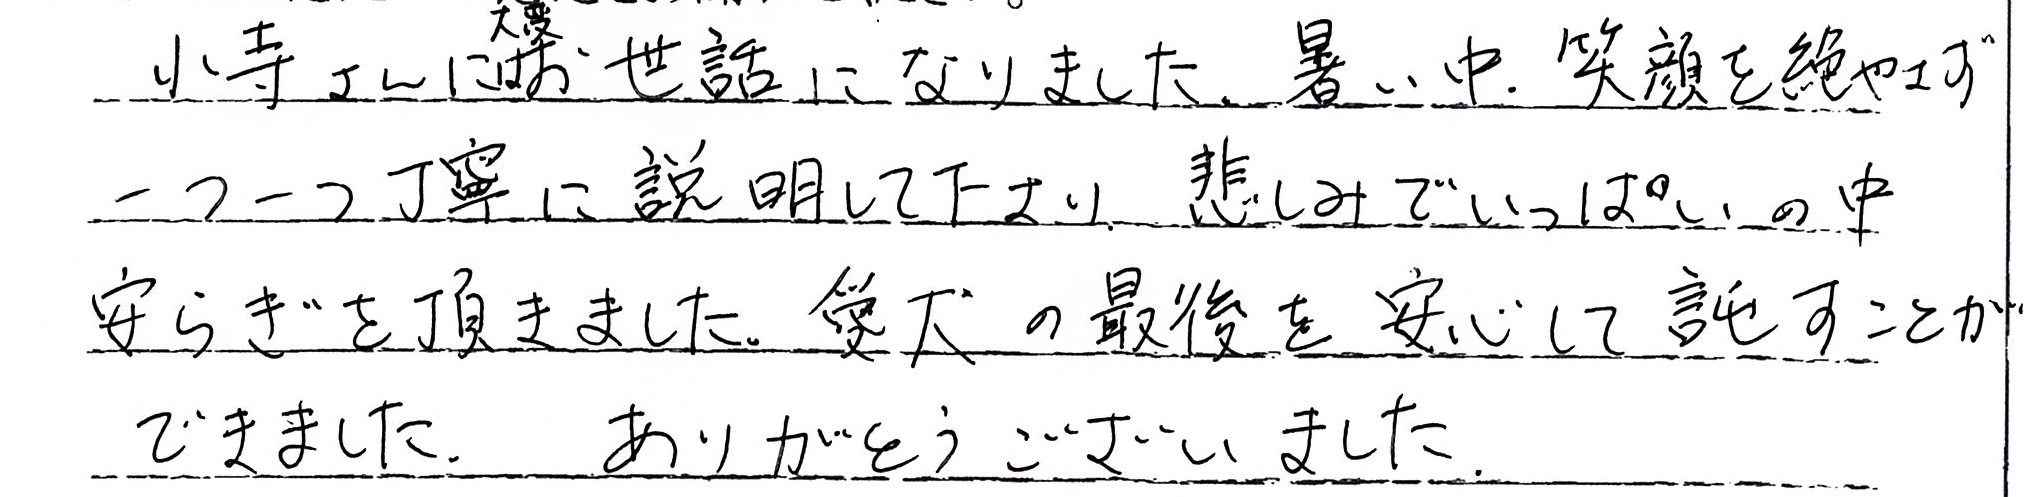 小寺さんには大変お世話になりました。暑い中、笑顔を絶やさず
一つ一つ丁寧に説明して下さり、悲しみでいっぱいの中
安らぎを頂きました。愛犬の最後を安心して託すことが
できました。 ありがとうございました。